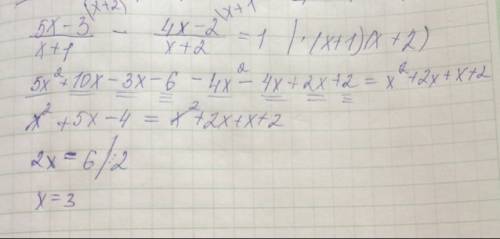 (5x-3)/(x+1) ^(x+2) - (4x-2)/(x+2) ^\x+1 = 1 | · (x+1)(x+2)
5x²+10x-3x-6-4x²-4x+2x+2 = x²+2x+x+2
x²+5x-4 = x²+2x+x+2
2x=6/:2
x=3